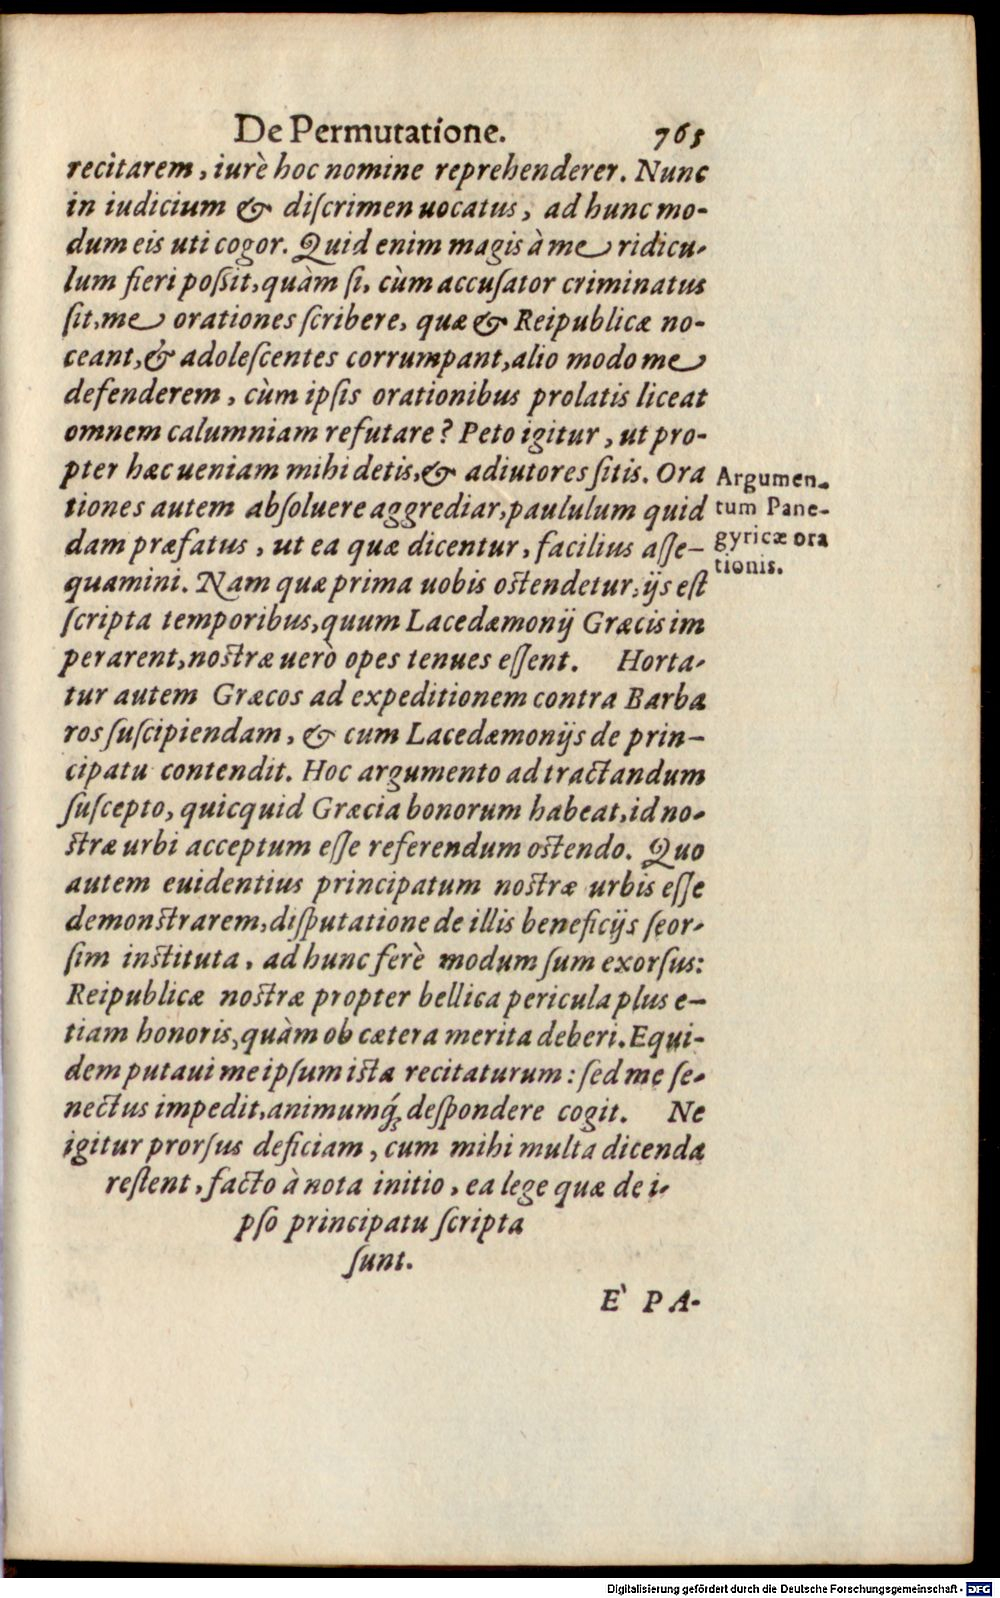 De Permutatione. 765
recitarem, iurè hoc nomine reprehenderer. Nunc
in iudicium & diſcrimen uocatus, ad hunc mo-
dum eis uti cogor. Quid enim magis à me ridicu-
lum fieri poſſit, quàm ſi, cùm accuſator criminatus
ſit, me orationes ſcribere, quæ & Reipublicæ no-
ceant, & adoleſcentes corrumpant, alio modo me
defenderem, cùm ipſis orationibus prolatis liceat
omnem calumniam refutare? Peto igitur, ut pro-
pter hæc ueniam mihi detis, & adiutores ſitis. Ora
tiones autem abſoluere aggrediar, paululum quid
dam præfatus, ut ea quæ dicentur, facilius aſſe-
quamini. Nam quæ prima uobis oſtendetur, ijs eſt
ſcripta temporibus, quum Lacedæmonij Græcis im
perarent, noſtræ uerò opes tenues eſſent. Horta-
tur autem Græcos ad expeditionem contra Barba
ros ſuſcipiendam, & cum Lacedæmonijs de prin-
cipatu contendit. Hoc argumento ad tractandum
ſuſcepto, quicquid Græcia bonorum habeat, id no-
ſtræ urbi acceptum eſſe referendum oſtendo. Quo
autem euidentius principatum noſtræ urbis eſſe
demonſtrarem, diſputatione de illis beneficijs ſeor-
ſim inſtituta, ad hunc ferè modum ſum exorſus:
Reipublicæ noſtræ propter bellica pericula plus e-
tiam honoris, quàm ob cætera merita deberi. Equi-
dem putaui meipſum iſta recitaturum: ſed me ſe-
nectus impedit, animumq́; deſpondere cogit. Ne
igitur prorſus deficiam, cum mihi multa dicenda
reſtent, facto à nota initio, ea lege quæ de i-
pſo principatu ſcripta
ſunt.
È PA-
Argumen-
tum Pane-
gyricæ ora
tionis.
Digitalisierung gefördert durch die Deutsche Forschungsgemeinschaft - DFG